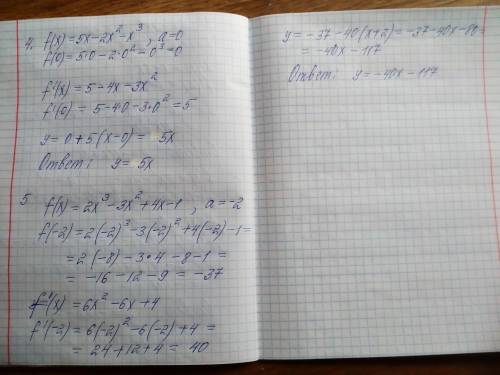 4. f(x) = 5x - 2x² - x³, a = 0
f(0) = 5·0 - 2·0² - 0³ = 0
f'(x) = 5 - 4x - 3x²
f'(0) = 5 - 4·0 - 3·0² = 5
y = 0 + 5(x - 0) = 5x
Ответ: y = 5x
5 f(x) = 2x³ - 3x² + 4x - 1, a = -2
f(-2) = 2(-2)³ - 3(-2)² + 4(-2) - 1 =
= 2(-8) - 3·4 - 8 - 1 =
= -16 - 12 - 9 = -37
f'(x) = 6x² - 6x + 4
f'(-2) = 6(-2)² - 6(-2) + 4 =
= 24 + 12 + 4 = 40
y = -37 - 40(x+2) = -37 - 40x - 80 =
= -40x - 117
Ответ: y = -40x - 117